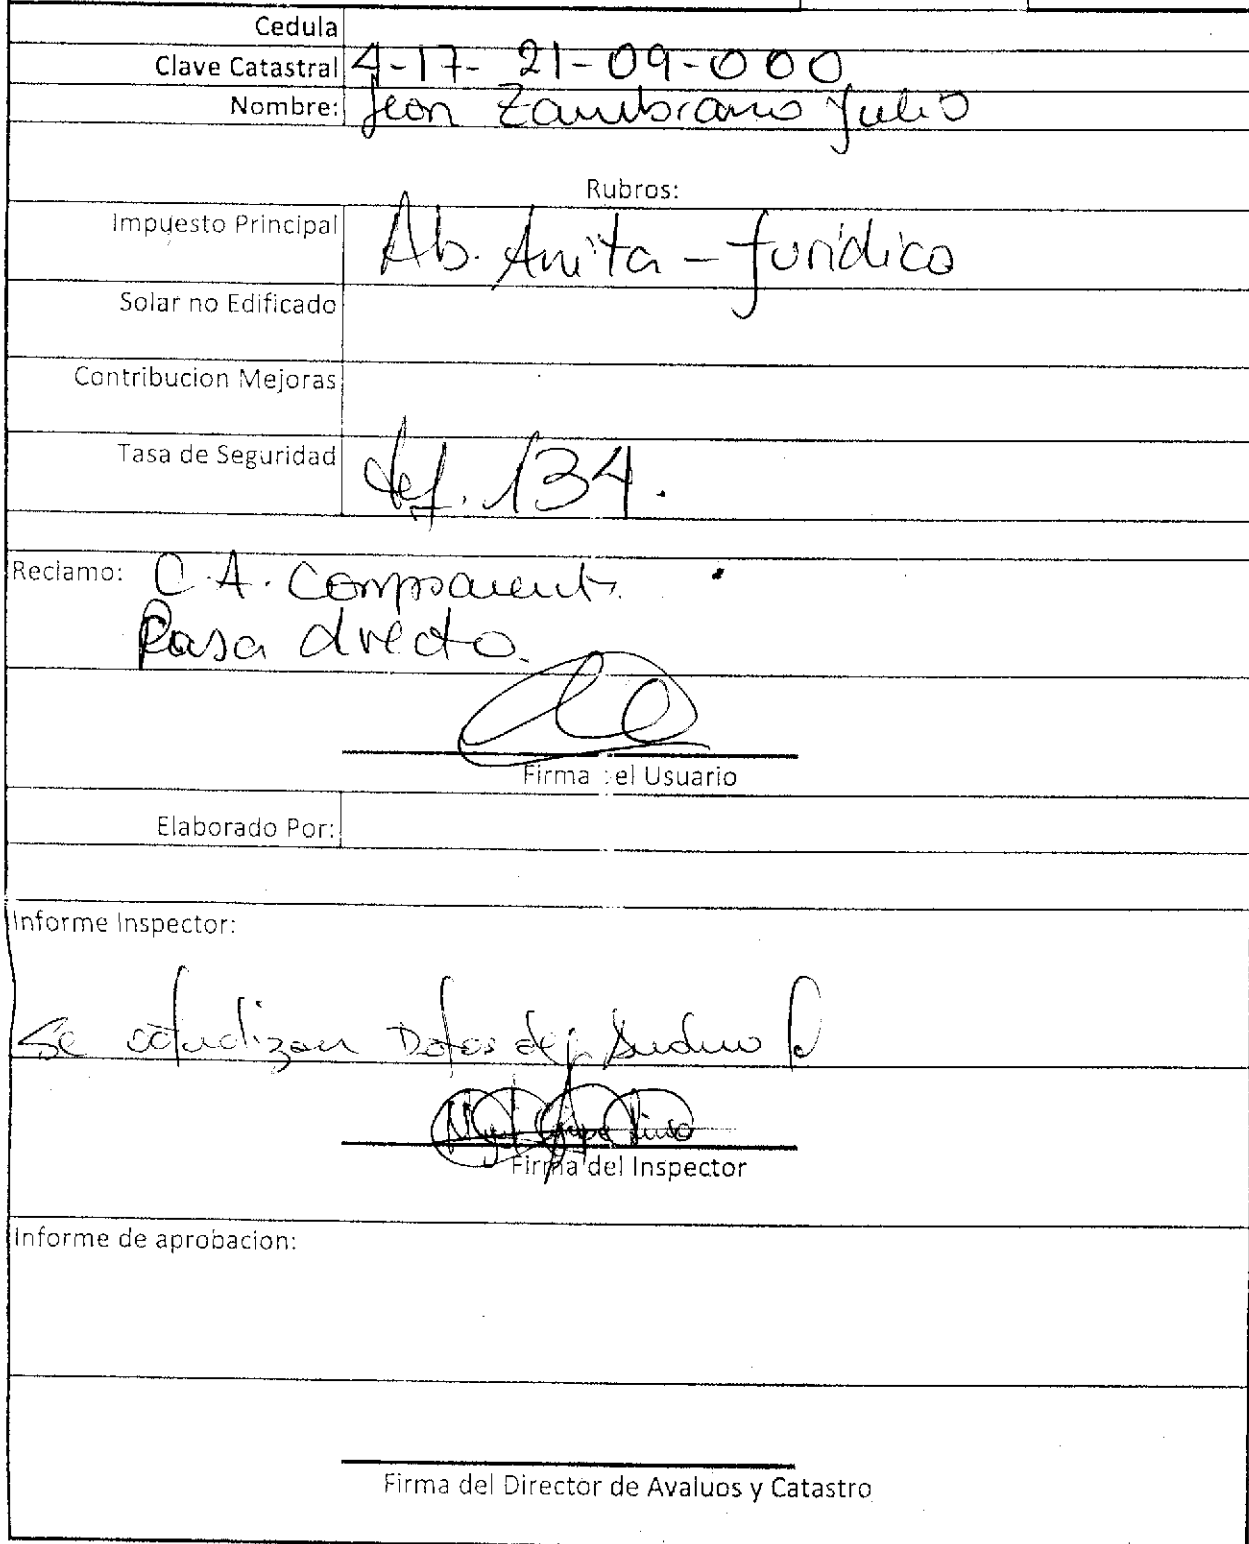 Cedula
Clave Catastral 4-17-21-09-000
Nombre: Jeon Zambrano Julio
Rubros:
Impuesto Principal Ab. Anita - Juridico
Solar no Edificado
Contribucion Mejoras
Tasa de Seguridad def. 134.
Reclamo: C.A. Comparent.
Pasa directo.
Firma del Usuario
Elaborado Por:
Informe Inspector:
Se actualizan Datos del
Firma del Inspector
Informe de aprobacion:
Firma del Director de Avaluos y Catastro